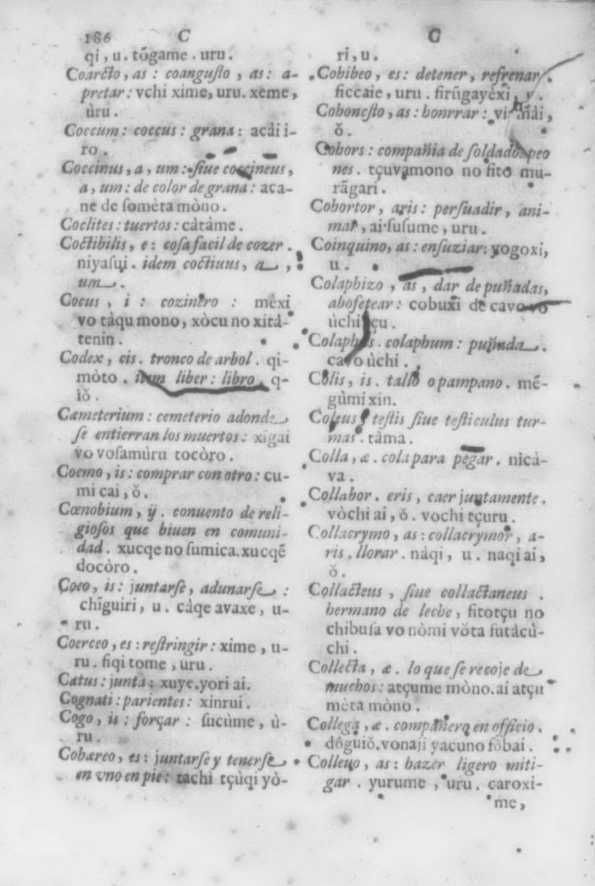 186 C C
qi, u. tõgame. uru.
Coarcto, as: coangusto, as: a-
pretar: vchi xime, uru. xeme,
ùru.
Coccum: coccus: grana: acài i-
ro.
Coccinus, a, um: siue coccineus,
a, um: de color de grana: aca-
ne de someta mòno.
Coclites: tuertos: càtàme.
Coctibilis, e: cosa facil de cozer.
niyasui. idem coctiuus, a,
um.
Cocus, i: cozinero: mexi
vo tàqu mono, xòcu no xitá-
tenin.
Codex, cis. tronco de arbol. qi-
mòto. item liber: libro, q-
iŏ.
Cæmeterium: cemeterio adonde
se entierran los muertos: xigai
vo vosamùru tocòro.
Coemo, is: comprar con otro: cu-
mi cai, ŏ.
Cœnobium, ÿ. conuento de reli-
giosos que biuen en comuni-
dad. xucqe no sumica. xucqē
docòro.
Coeo, is: juntarse, adunarse:
chīguiri, u. càqe avaxe, u-
ru.
Coerceo, es: restringir: xime, u-
ru. fiqi tome, uru.
Cætus: junta: xuye. yori ai.
Cognati: parientes: xinrui.
Cogo, is: forçar: sucùme, ù-
ru.
Cohæreo, es: juntarse y tenerse
en vno en pie: tachi tçùqi yò-
ri, u.
Cohibeo, es: detener, refrenar.
ficcaie, uru. firũgayexi, v.
Cohonesto, as: honrrar:
ŏ.
Cohors: compañia de soldados peo
nes. tçuvamono no fito mu-
rãgari.
Cohortor, aris: persuadir, ani-
mar, ai susume, uru.
Coinquino, as: ensuziar: yogoxi,
u.
Colaphizo, as, dar de puñadas,
abofetear: cobuxi de cavo vo
ùchi, çu.
Colaphus. colaphum: puñada.
cavo ùchi.
Colis, is. tallo o pampano. mē-
gùmi xin.
Coleus, testis siue testiculus tur-
mas. tàma.
Colla, æ. cola para pegar. nicà-
va.
Collabor. eris, caer juntamente.
vòchi ai, ŏ. vochi tçuru.
Collacrymo, as: collacrymor, a-
ris. llorar. nàqi, u. naqi ai,
ŏ.
Collacteus, siue collactaneus.
hermano de leche, fitotçu no
chibusa vo nòmi vŏta sutàcù-
chi.
Collecta, æ. lo que se recoje de
muchos: atçume mòno. ai atçu
mèta mòno.
Collega, æ. compañero en officio.
dôguiŏ. vonaji yacuno fŏbai.
Colleuo, as: hazer ligero miti-
gar. yurume, uru. caroxi-
me,